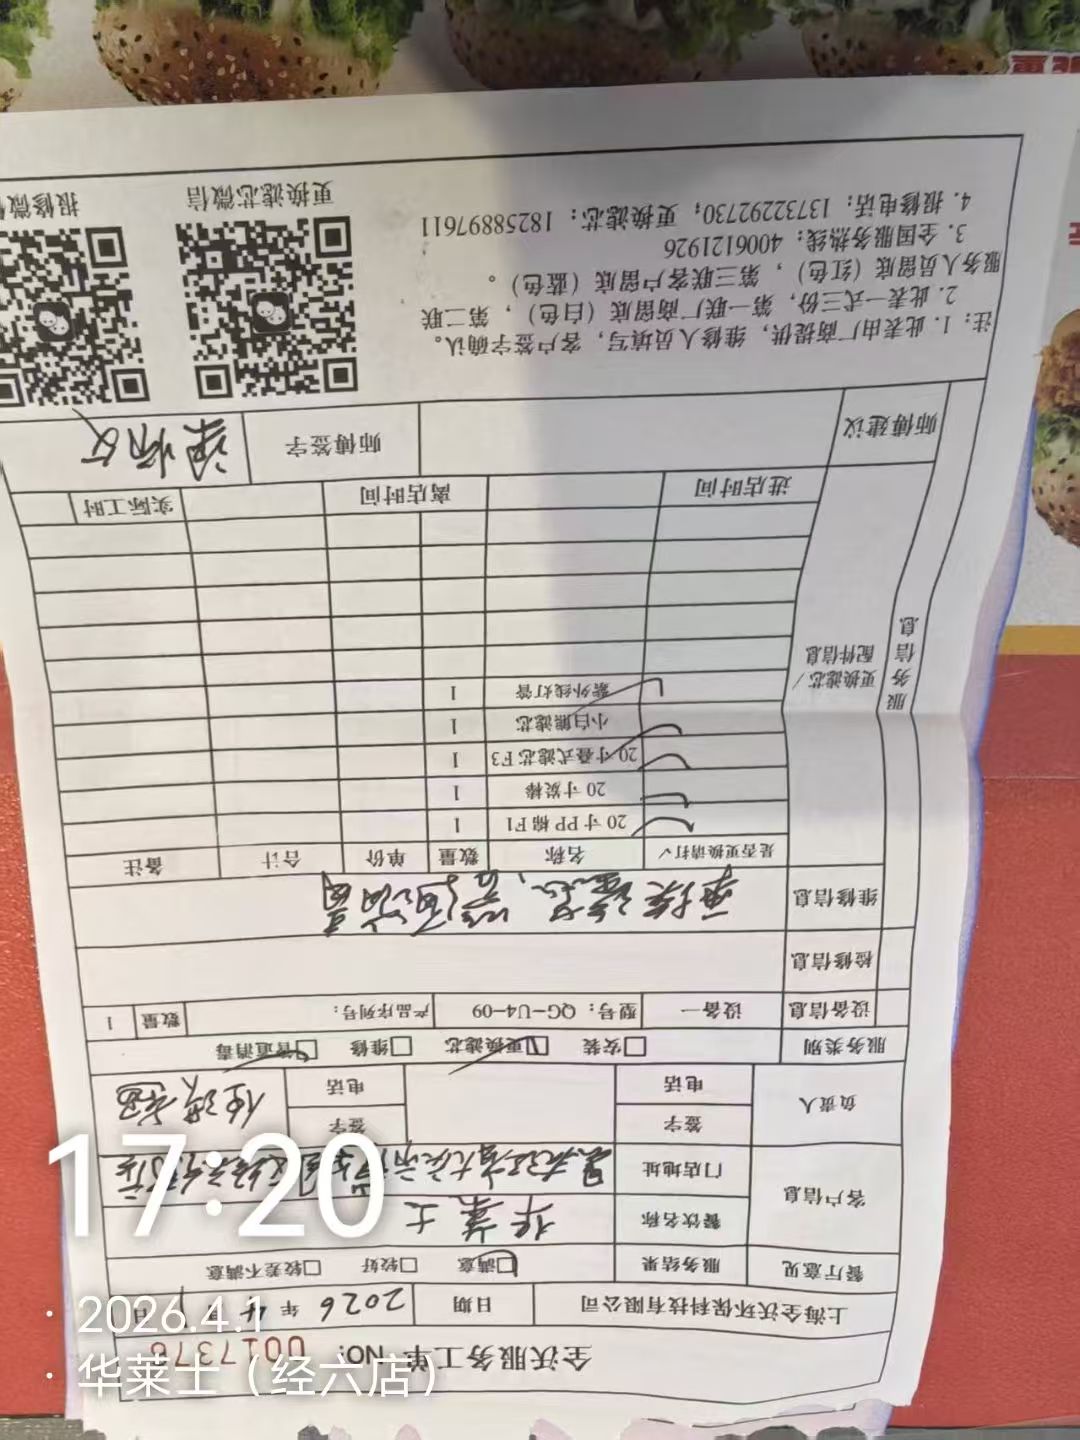 全沃服务工单 NO: 0017376
上海全沃环保科技有限公司 日期 2026年4月1日
餐厅意见 服务结果 满意 较好 较差不满意
客户信息 餐饮名称 华莱士
门店地址
负责人 签字 签字
电话 电话
服务类别 安装 更换滤芯 维修 管道消毒
设备信息 设备一 型号：QG-U4-09 产品序列号： 数量 1
检修信息
维修信息 更换滤芯、管道消毒
服务信息
更换滤芯/配件信息
是否更换请打✓ 名称 数量 单价 合计 备注
✓ 20寸PP棉F1 1
✓ 20寸炭棒 1
✓ 20寸叠式滤芯F3 1
✓ 小白熊滤芯 1
✓ 紫外线灯管 1
进店时间 离店时间 实际工时
师傅建议 师傅签字
注：1.此表由厂商提供，维修人员填写，客户签字确认。
2.此表一式三份，第一联厂商留底（白色），第二联
服务人员留底（红色），第三联客户留底（蓝色）。
3.全国服务热线：4006121926
4.报修电话：13732292730；更换滤芯：18258897611
更换滤芯微信
报修微
17:20
· 2026.4.1
· 华莱士（经六店）